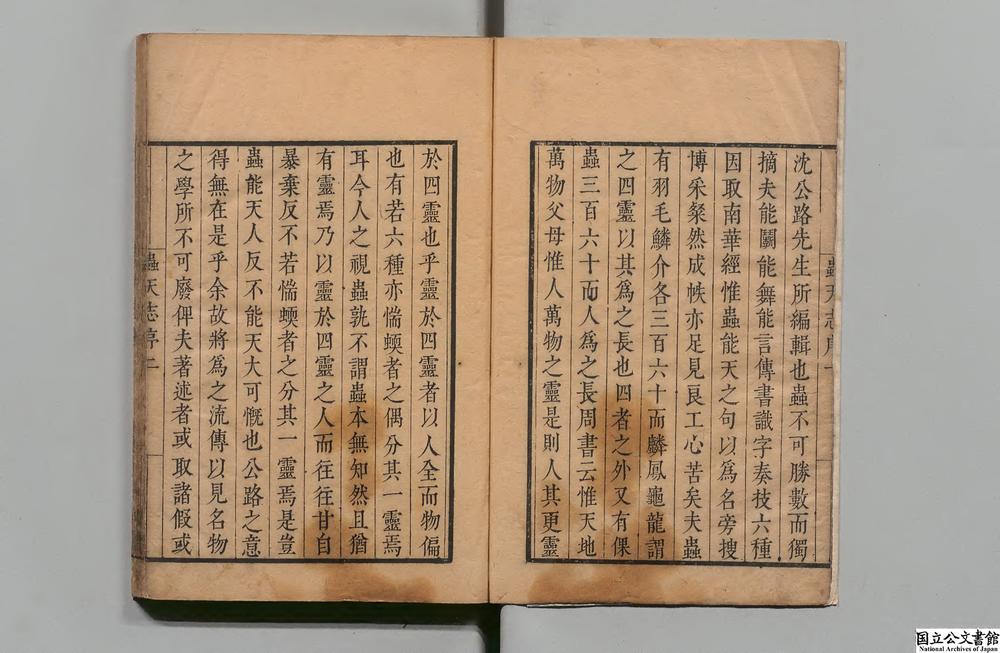 沈公路先生所編輯也蟲不可勝數而獨
摘夫能鬭能舞能言傳書識字奏技六種
因取南華經惟蟲能天之句以爲名旁搜
博采粲然成帙亦足見良工心苦矣夫蟲
有羽毛鱗介各三百六十而麟鳳龜龍謂
之四靈以其爲之長也四者之外又有倮
蟲三百六十而人爲之長周書云惟天地
萬物父母惟人萬物之靈是則人其更靈
於四靈也乎靈於四靈者以人全而物偏
也有若六種亦惴蝡者之偶分其一靈焉
耳今人之視蟲孰不謂蟲本無知然且猶
有靈焉乃以靈於四靈之人而往往甘自
暴棄反不若惴蝡者之分其一靈焉是豈
蟲能天人反不能天大可慨也公路之意
得無在是乎余故將爲之流傳以見名物
之學所不可廢俾夫著述者或取諸假或
蟲天志序一
蟲天志序二
国立公文書館
National Archives of Japan